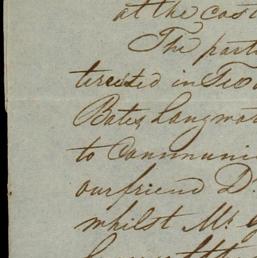 at the cos
The part
terested in Tex
Bates Langwor
to Communi
our friend D.
whilst Mr. G